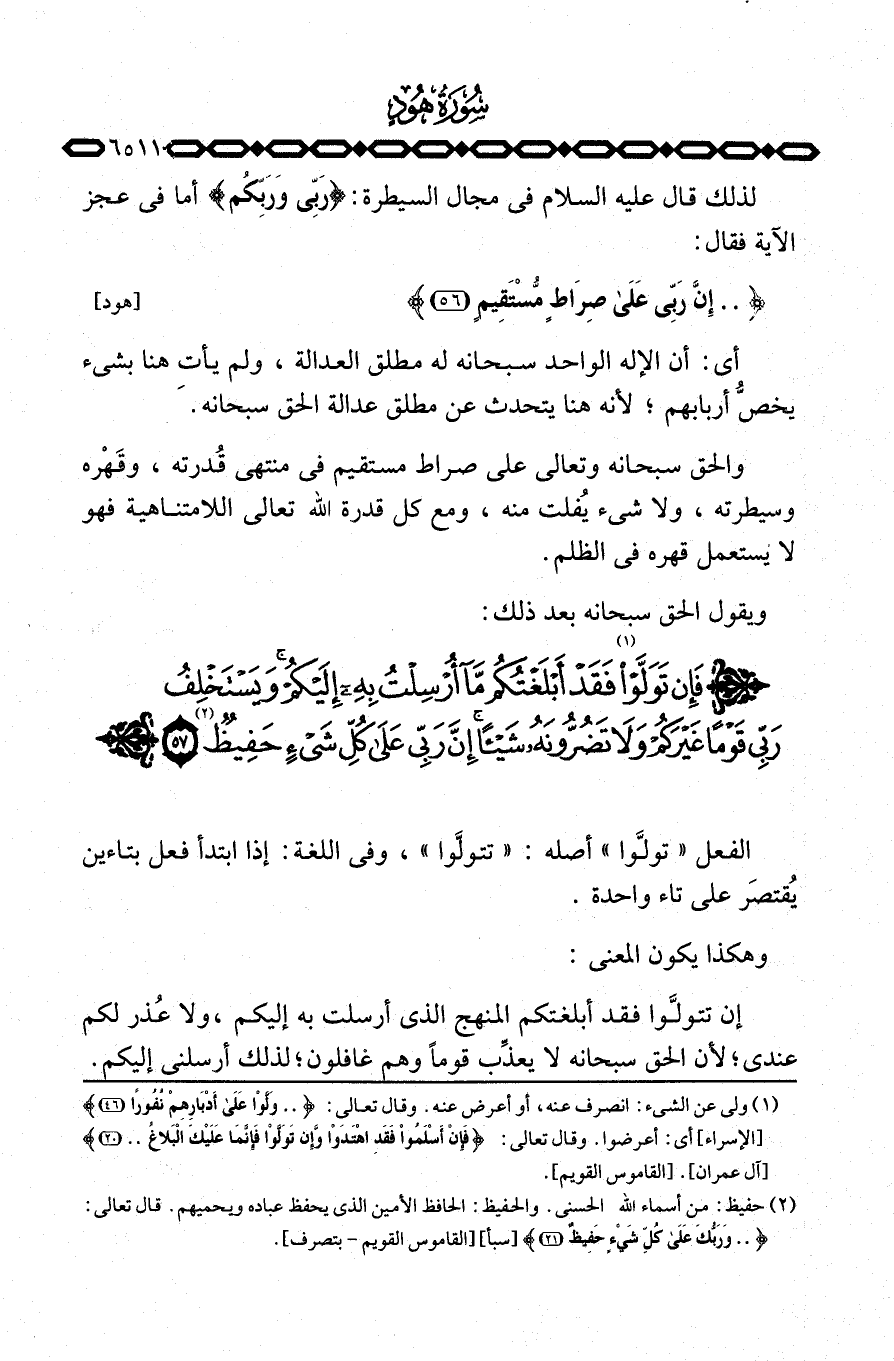 سُورَةُ هُودٍ
٦٥١١
لذلك قال عليه السلام فى مجال السيطرة : ﴿رَبِّى وَرَبِّكُم﴾ أما فى عجز
الآية فقال :
﴿ .. إِنَّ رَبِّى عَلَىٰ صِرَاطٍ مُّسْتَقِيمٍ (٥٦)﴾ [هود]
أى : أن الإله الواحد سبحانه له مطلق العدالة ، ولم يأتِ هنا بشىء
يخصُّ أربابهم ؛ لأنه هنا يتحدث عن مطلق عدالة الحق سبحانه .
والحق سبحانه وتعالى على صراط مستقيم فى منتهى قُدرته ، وقَهْره
وسيطرته ، ولا شىء يُفلت منه ، ومع كل قدرة الله تعالى اللامتناهية فهو
لا يستعمل قهره فى الظلم .
ويقول الحق سبحانه بعد ذلك :
فَإِن تَوَلَّوْا۟ (١) فَقَدْ أَبْلَغْتُكُم مَّآ أُرْسِلْتُ بِهِۦٓ إِلَيْكُمْ ۚ وَيَسْتَخْلِفُ
رَبِّى قَوْمًا غَيْرَكُمْ وَلَا تَضُرُّونَهُۥ شَيْـًٔا ۚ إِنَّ رَبِّى عَلَىٰ كُلِّ شَىْءٍ حَفِيظٌ (٢) ٥٧
الفعل « تولَّوا » أصله : « تتولَّوا » ، وفى اللغة : إذا ابتدأ فعل بتاءين
يُقتصَر على تاء واحدة .
وهكذا يكون المعنى :
إن تتولَّوا فقد أبلغتكم المنهج الذى أرسلت به إليكم ، ولا عُذر لكم
عندى ؛ لأن الحق سبحانه لا يعذِّب قوماً وهم غافلون ؛ لذلك أرسلنى إليكم .
(١) ولى عن الشىء : انصرف عنه ، أو أعرض عنه . وقال تعالى : ﴿ .. وَلَّوْا عَلَىٰ أَدْبَارِهِمْ نُفُورًا (٤٦)﴾
[الإسراء] أى : أعرضوا . وقال تعالى : ﴿فَإِنْ أَسْلَمُوا فَقَدِ اهْتَدَوْا وَّإِن تَوَلَّوْا فَإِنَّمَا عَلَيْكَ الْبَلَاغُ .. (٢٠)﴾
[آل عمران] . [القاموس القويم] .
(٢) حفيظ : من أسماء الله الحسنى . والحفيظ : الحافظ الأمين الذى يحفظ عباده ويحميهم . قال تعالى :
﴿ .. وَرَبُّكَ عَلَىٰ كُلِّ شَيْءٍ حَفِيظٌ (٢١)﴾ [سبأ] [القاموس القويم - بتصرف] .